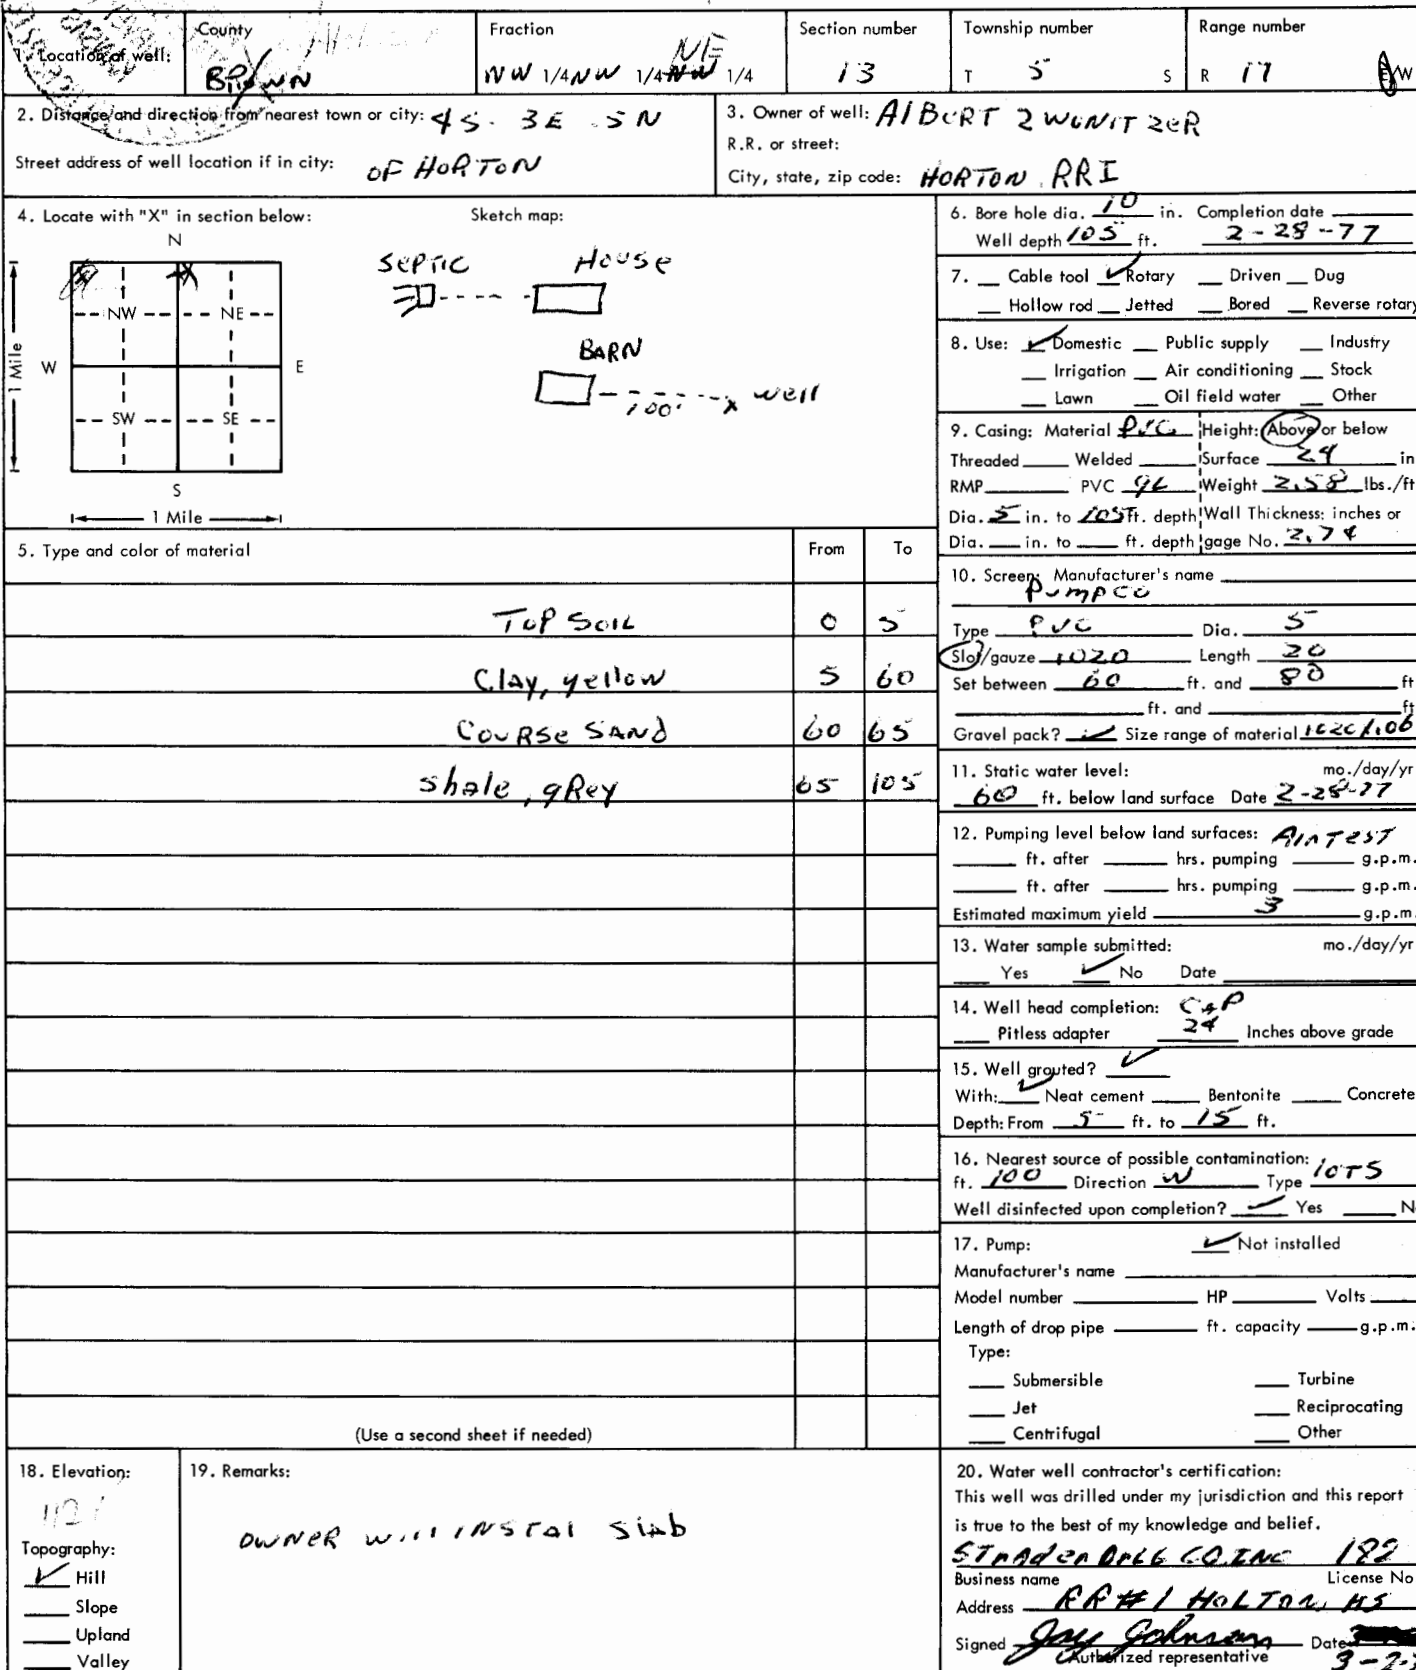 County Fraction Section number Township number Range number
1. Location of well: BROWN NW 1/4 NW 1/4 NW NE 1/4 13 T 5 S R 17 E/W
2. Distance and direction from nearest town or city: 4S. 3E .5N
Street address of well location if in city: OF HORTON
3. Owner of well: AlBERT ZWONITZER
R.R. or street:
City, state, zip code: HORTON RRI
4. Locate with "X" in section below: Sketch map:
N
NW NE
W E
SW SE
S
1 Mile
1 Mile
SEPTIC HOUSE
BARN
100' X well
5. Type and color of material From To
TOP SOIL 0 5
Clay, yellow 5 60
COURSE SAND 60 65
shale, gRey 65 105
(Use a second sheet if needed)
6. Bore hole dia. 10 in. Completion date
Well depth 105 ft. 2-28-77
7. Cable tool ✓ Rotary Driven Dug
Hollow rod Jetted Bored Reverse rotary
8. Use: ✓ Domestic Public supply Industry
Irrigation Air conditioning Stock
Lawn Oil field water Other
9. Casing: Material PVC Height: Above or below
Threaded Welded Surface 24 in
RMP PVC Weight 2.58 lbs./ft
Dia. 5 in. to 105 ft. depth Wall Thickness: inches or
Dia. in. to ft. depth gage No. 2.74
10. Screen: Manufacturer's name
PUMPCO
Type PVC Dia. 5
Slot/gauze Length 20
Set between 60 ft. and 80 ft
ft. and ft
Gravel pack? ✓ Size range of material
11. Static water level: mo./day/yr
60 ft. below land surface Date 2-28-77
12. Pumping level below land surfaces: AIR TEST
ft. after hrs. pumping g.p.m.
ft. after hrs. pumping g.p.m.
Estimated maximum yield 3 g.p.m.
13. Water sample submitted: mo./day/yr
Yes ✓ No Date
14. Well head completion: CAP
Pitless adapter 24 Inches above grade
15. Well grouted? ✓
With: ✓ Neat cement Bentonite Concrete
Depth: From 5 ft. to 15 ft.
16. Nearest source of possible contamination:
ft. 100 Direction W Type lOTS
Well disinfected upon completion? ✓ Yes N
17. Pump: ✓ Not installed
Manufacturer's name
Model number HP Volts
Length of drop pipe ft. capacity g.p.m.
Type:
Submersible Turbine
Jet Reciprocating
Centrifugal Other
18. Elevation:
Topography:
✓ Hill
Slope
Upland
Valley
19. Remarks:
OWNER will INSTAl Slab
20. Water well contractor's certification:
This well was drilled under my jurisdiction and this report
is true to the best of my knowledge and belief.
STRADER DRLG CO. INC 182
Business name License No
Address RR#1 HOLTON, KS
Signed Jay Johnson Date
Authorized representative